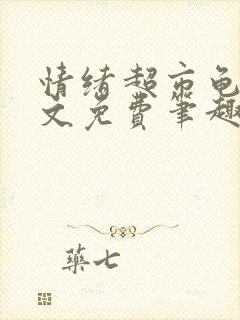 情绪超市龟
文免费笔趣
药七